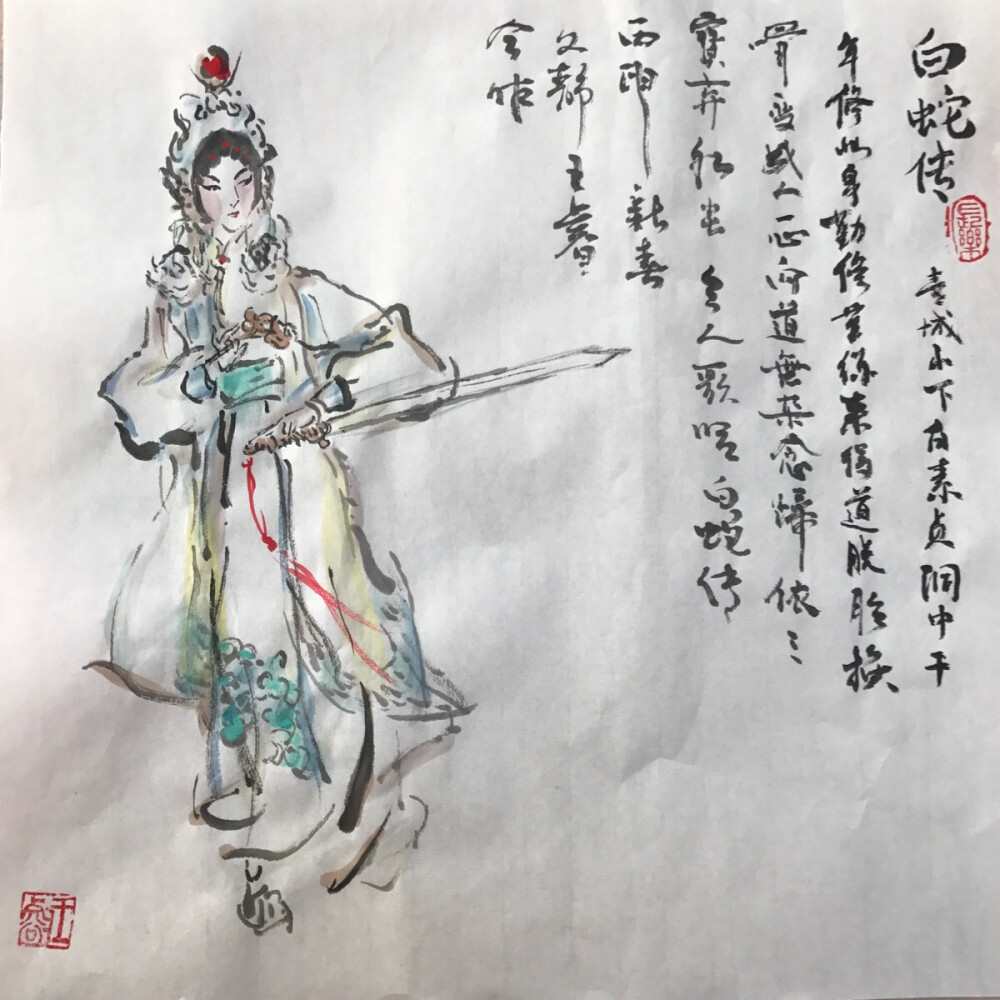 白蛇传 青城山下白素贞洞中千
年修此身勤修苦练来得道脱胎换
骨变成人一心向道無杂念歸依三
寳弃红尘 人歌唱白蛇传
丙申新春
文静 王
合作
長樂